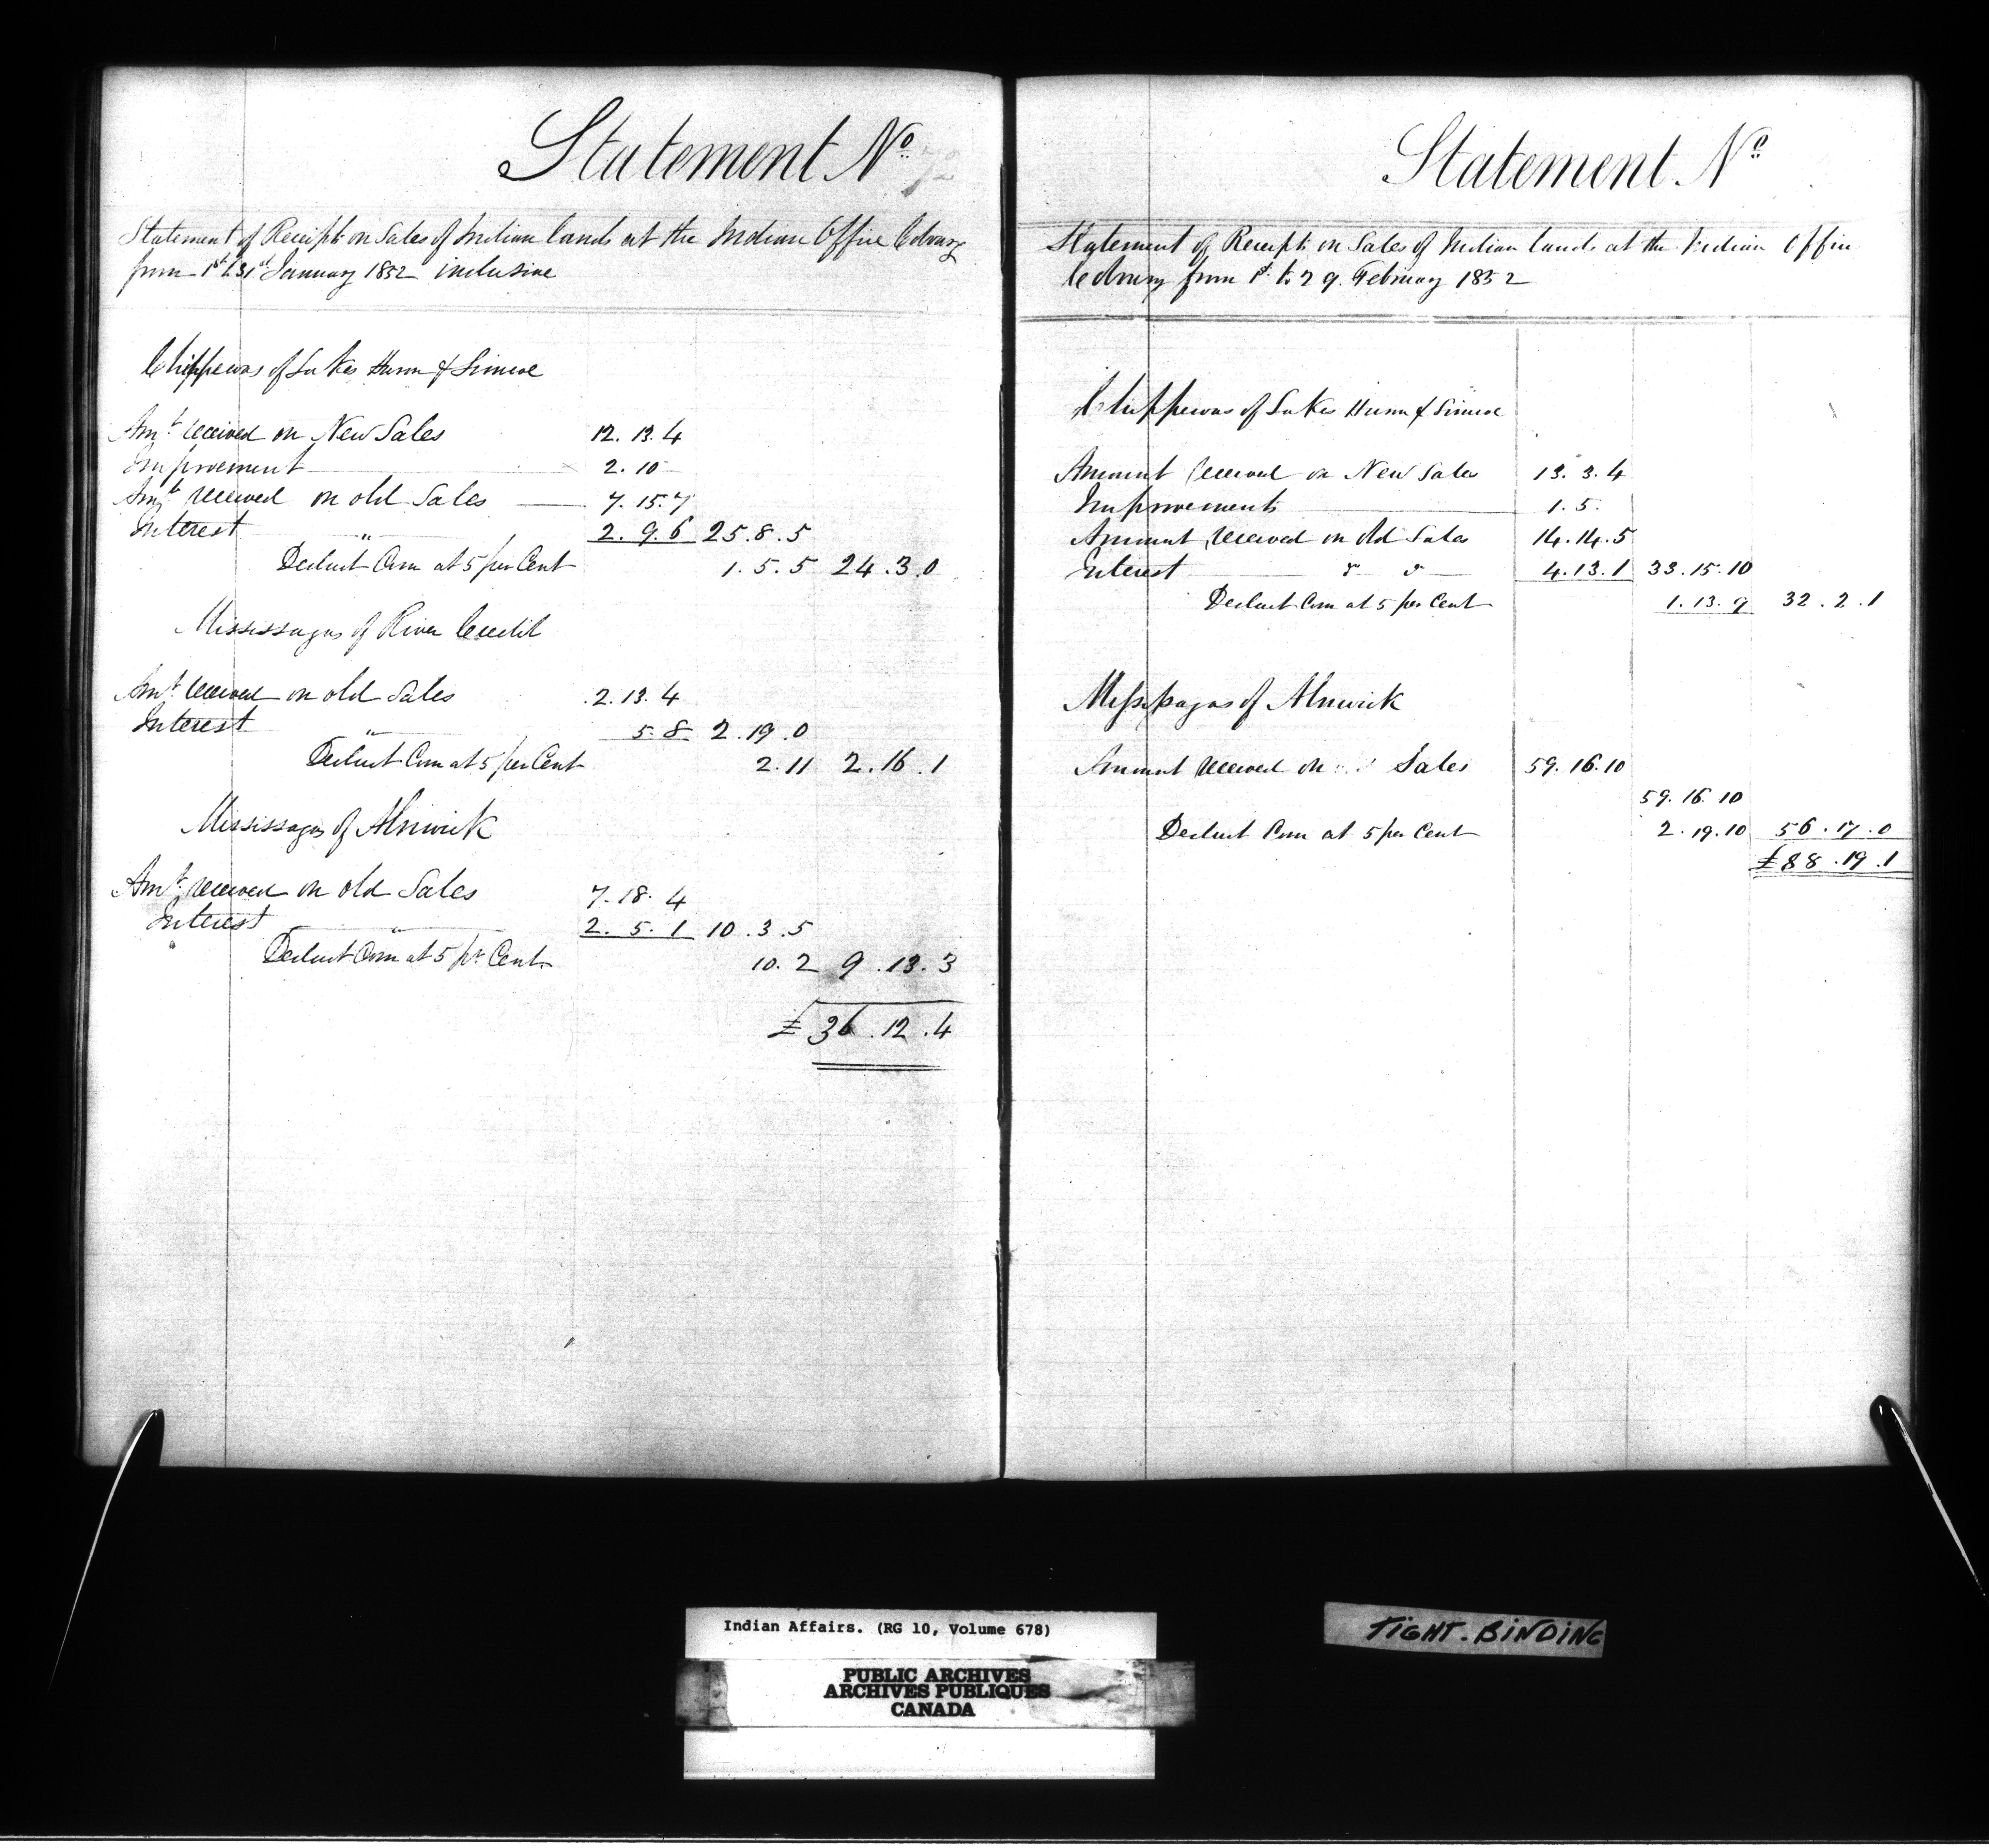 Statement No. 72
Statement of Receipts on Sales of Indian lands at the Indian Office Cobourg
from 1st to 31st January 1852 inclusive
Chippewas of Lakes Huron & Simcoe
Amt. received on New Sales 12. 13. 4
Improvement 2. 10
Amt received on old Sales 7. 15. 7
Interest " 2. 9. 6 25. 8. 5
Deduct Com at 5 per Cent 1. 5. 5 24. 3. 0
Mississagas of River Credit
Amt received on old Sales 2. 13. 4
Interest " 5. 8 2. 19. 0
Deduct Com at 5 per Cent 2. 11 2. 16. 1
Mississagas of Alnwick
Amt. received on old Sales 7. 18. 4
Interest " 2. 5. 1 10. 3. 5
Deduct Com at 5 pr Cent. 10. 2 9. 13. 3
£ 36. 12. 4
Statement No
Statement of Receipts on Sales of Indian lands at the Indian Office
Cobourg from 1st to 29. February 1852
Chippewas of Lakes Huron & Simcoe
Amount received on New Sales 13. 3. 4
Improvements 1. 5.
Amount received on Old Sales 14. 14. 5
Interest " " 4. 13. 1 33. 15. 10
Deduct Com at 5 per Cent 1. 13. 9 32. 2. 1
Missisagas of Alnwick
Amount received on Sales 59. 16. 10
59. 16. 10
Deduct Com at 5 per Cent 2. 19. 10 56. 17. 0
£88. 19. 1
Indian Affairs. (RG 10, Volume 678)
PUBLIC ARCHIVES
ARCHIVES PUBLIQUES
CANADA
TIGHT-BINDING